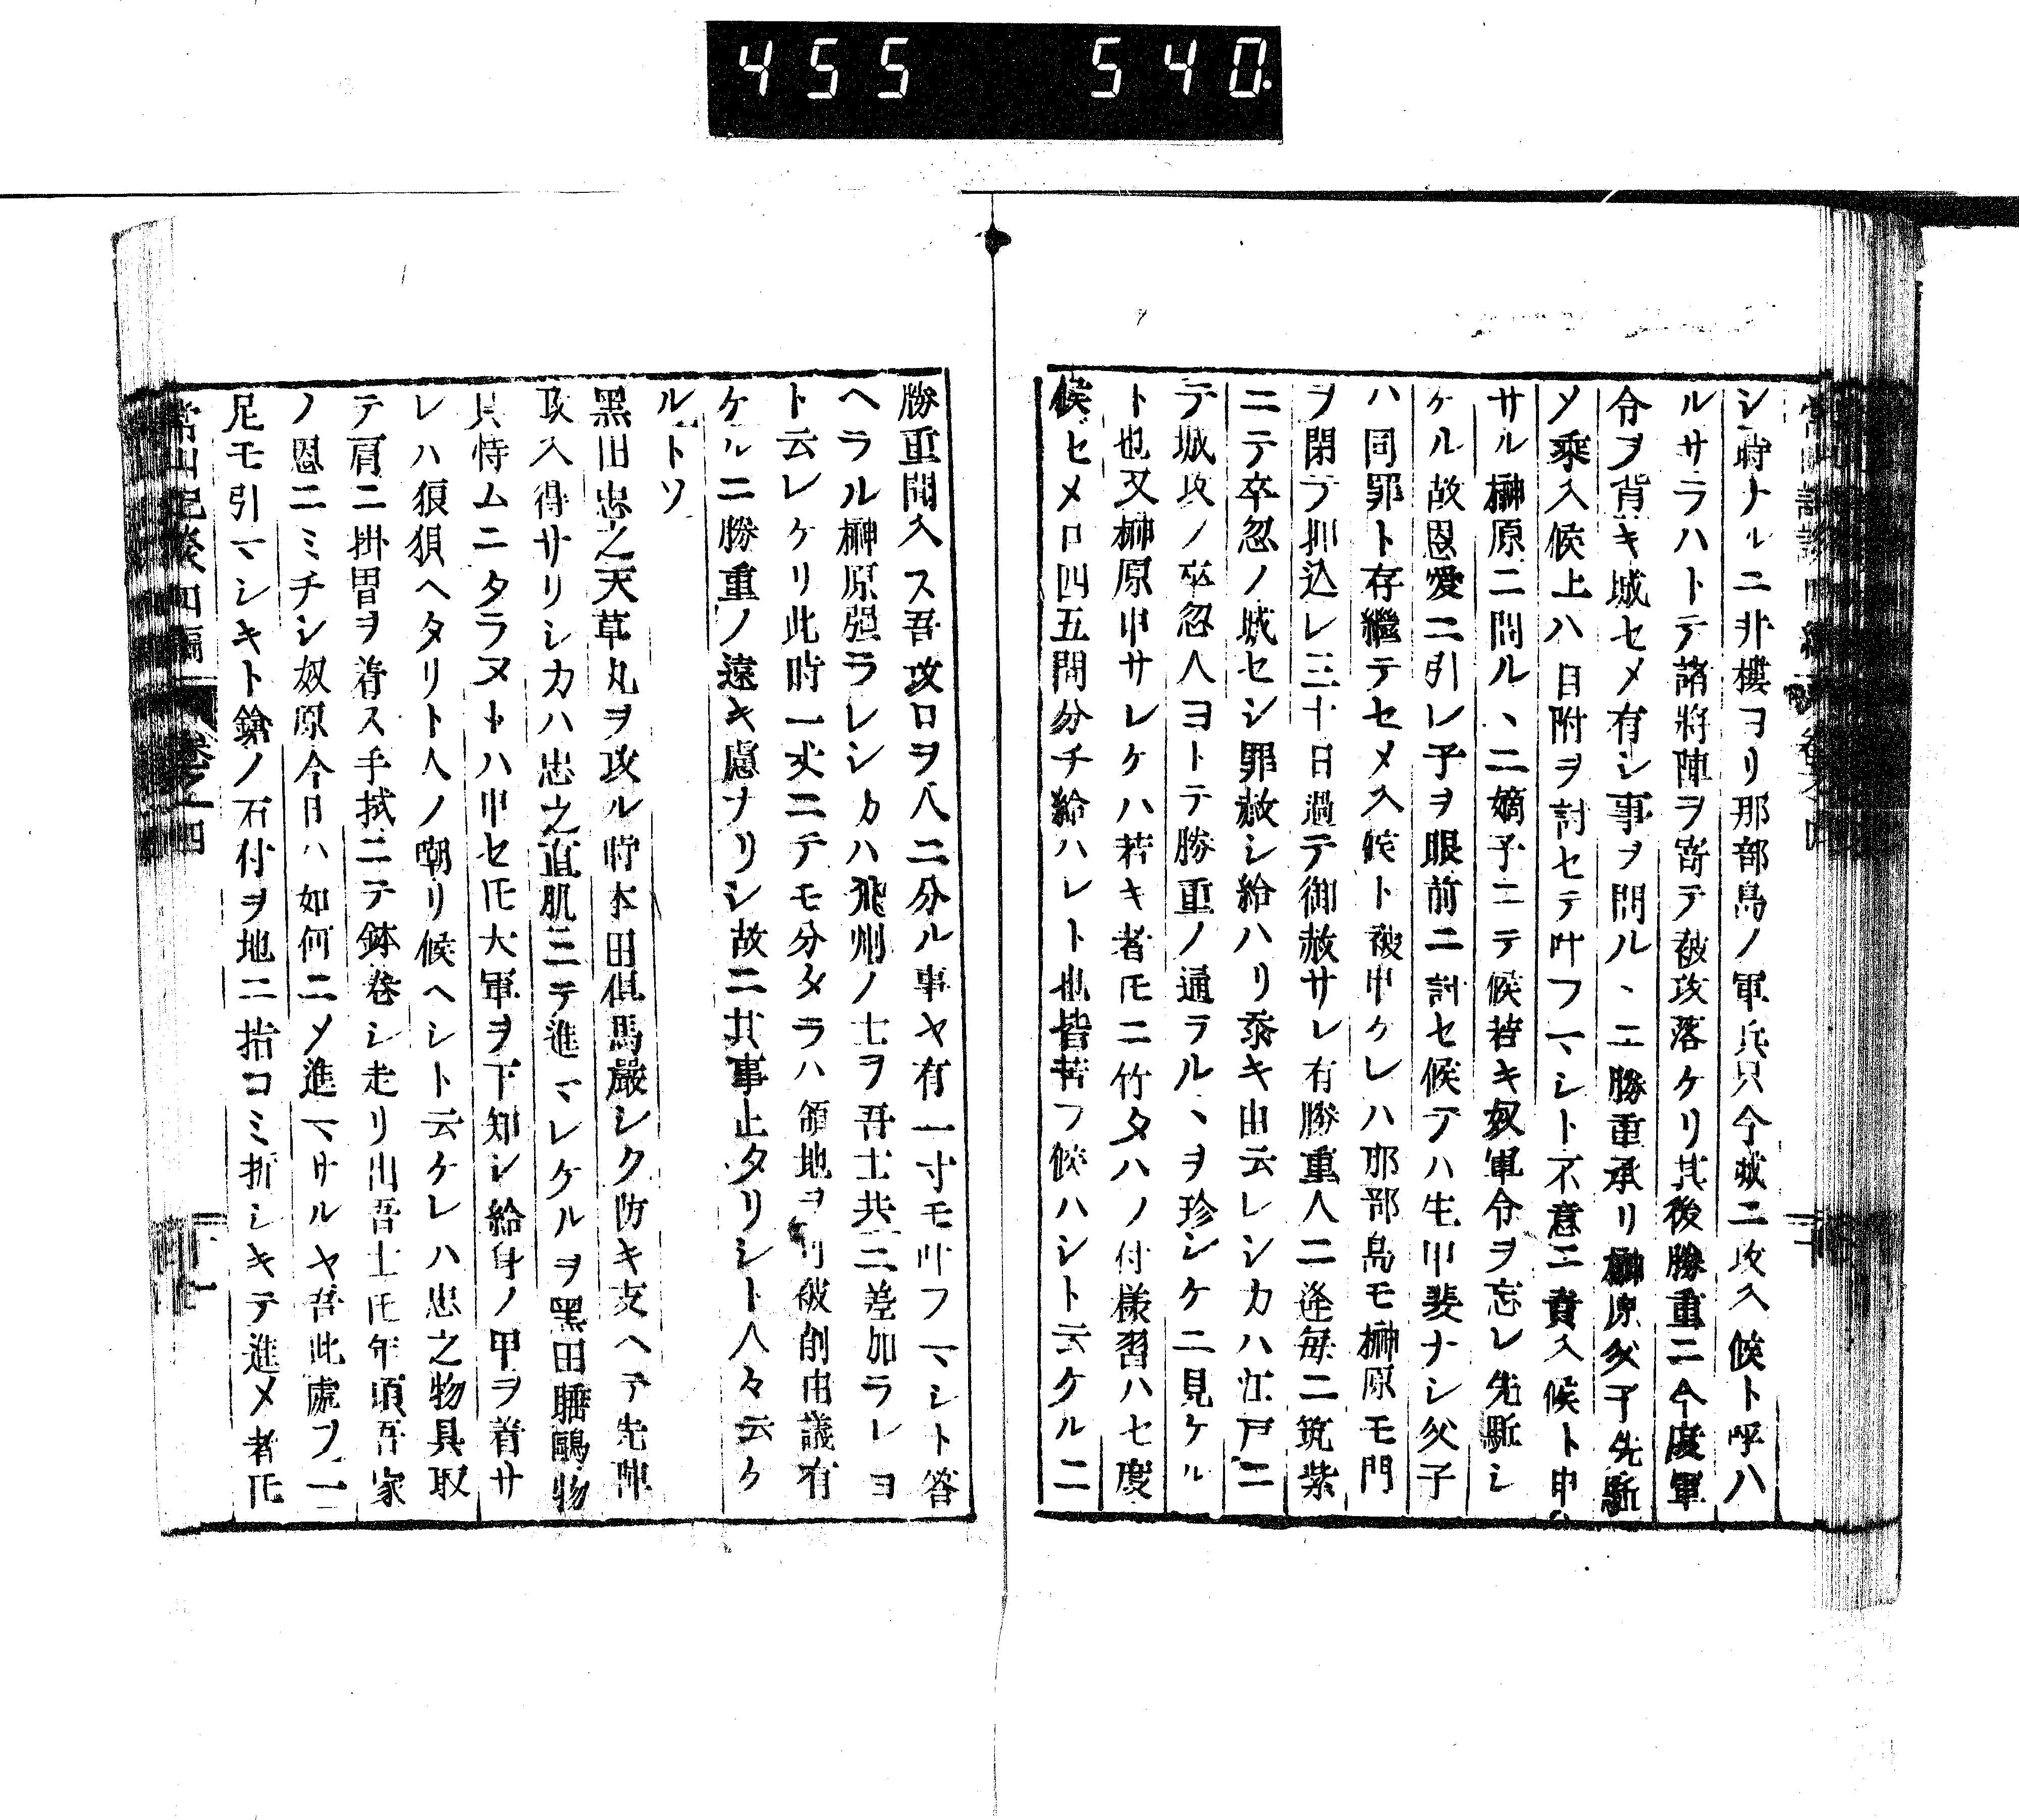 455 540.
シ時ナルニ井樓ヨリ那部島ノ軍兵只今城ニ攻入候ト呼ハ
ルサラハトテ諸將陣ヲ寄テ被攻落ケリ其後勝重ニ今度軍
令ヲ背キ城セメ有シ事ヲ問ル丶ニ勝重承リ榊原父子先駈
〆乘入候上ハ目附ヲ討セテ叶フマシト不意ニ責入候ト申
サル榊原ニ問ル丶ニ嫡子ニテ候若キ奴軍令ヲ忘レ先駈シ
ケル故恩愛ニ引レ子ヲ眼前ニ討セ候テハ生甲斐ナシ父子
ハ同罪ト存繼テセメ入候ト被申ケレハ那部島モ榊原モ門
ヲ閉テ押込レ三十日過テ御赦サレ有勝重人ニ逢毎ニ筑紫
ニテ卒忽ノ城セシ罪赦シ給ハリ忝キ由云レシカハ江戸ニ
テ城攻ノ卒忽人ヨトテ勝重ノ通ラル丶ヲ珍シケニ見ケル
ト也又榊原申サレケハ若キ者𪜈ニ竹タハノ付樣習ハセ度
候セメ口四五間分チ給ハレト也皆若フ候ハシト云ケルニ
勝重聞入ス吾攻口ヲ人ニ分ル事ヤ有一寸モ叶フマシト答
ヘラル榊原強ラレシカハ飛州ノ士ヲ吾士共ニ差加ラレヨ
ト云レケリ此時一丈ニテモ分タラハ領地ヲ被削由議有
ケルニ勝重ノ遠キ慮ナリシ故ニ其事止タリシト人々云ケ
ルトソ
黑田忠之天草丸ヲ攻ル時本田但馬嚴シク防キ支ヘテ先陣
攻入得サリシカハ忠之直肌ニテ進マレケルヲ黑田睡鷗物
具恃ムニタラヌトハ申セ𪜈大軍ヲ下知シ給身ノ甲ヲ着サ
レハ狼狽ヘタリト人ノ嘲リ候ヘシト云ケレハ忠之物具取
テ肩ニ掛冑ヲ着ス手拭ニテ鉢卷シ走リ出吾士𪜈年頃吾家
ノ恩ニミチシ奴原今日ハ如何ニ〆進マサルヤ吾此處ヲ一
足モ引マシキト鎗ノ石付ヲ地ニ指コミ折シキテ進メ者𪜈
常山紀談四編 卷之十四